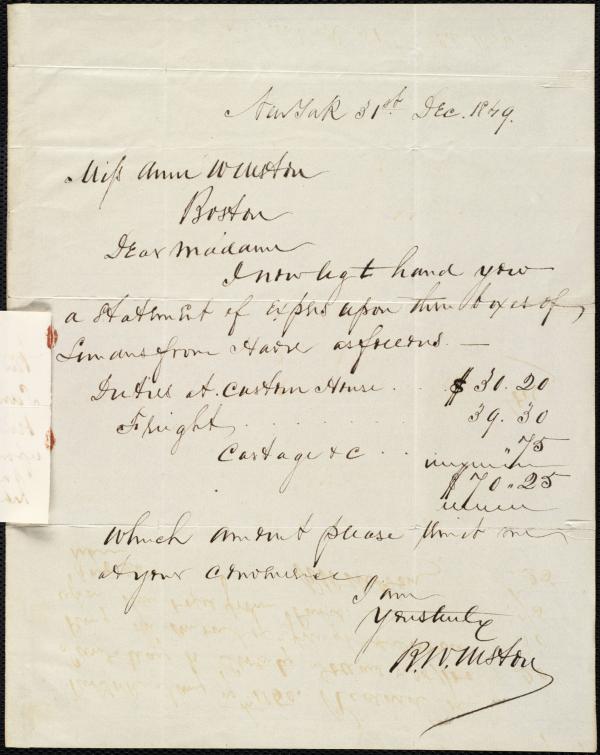 New York 31st Dec. 1849.
Miss Anne W Weston
Boston
Dear Madame
I now begt hand you
a statement of Expns upon three boxes of
from Havre as follows —
Duties at Custom House . . . $ 30. 20
Freight . . . . . . . . 39. 30
Cartage &c . . " 75
$ 70 " 25
Which amount please remit me
at your convenience
I am
Yours truly
R. W. Weston